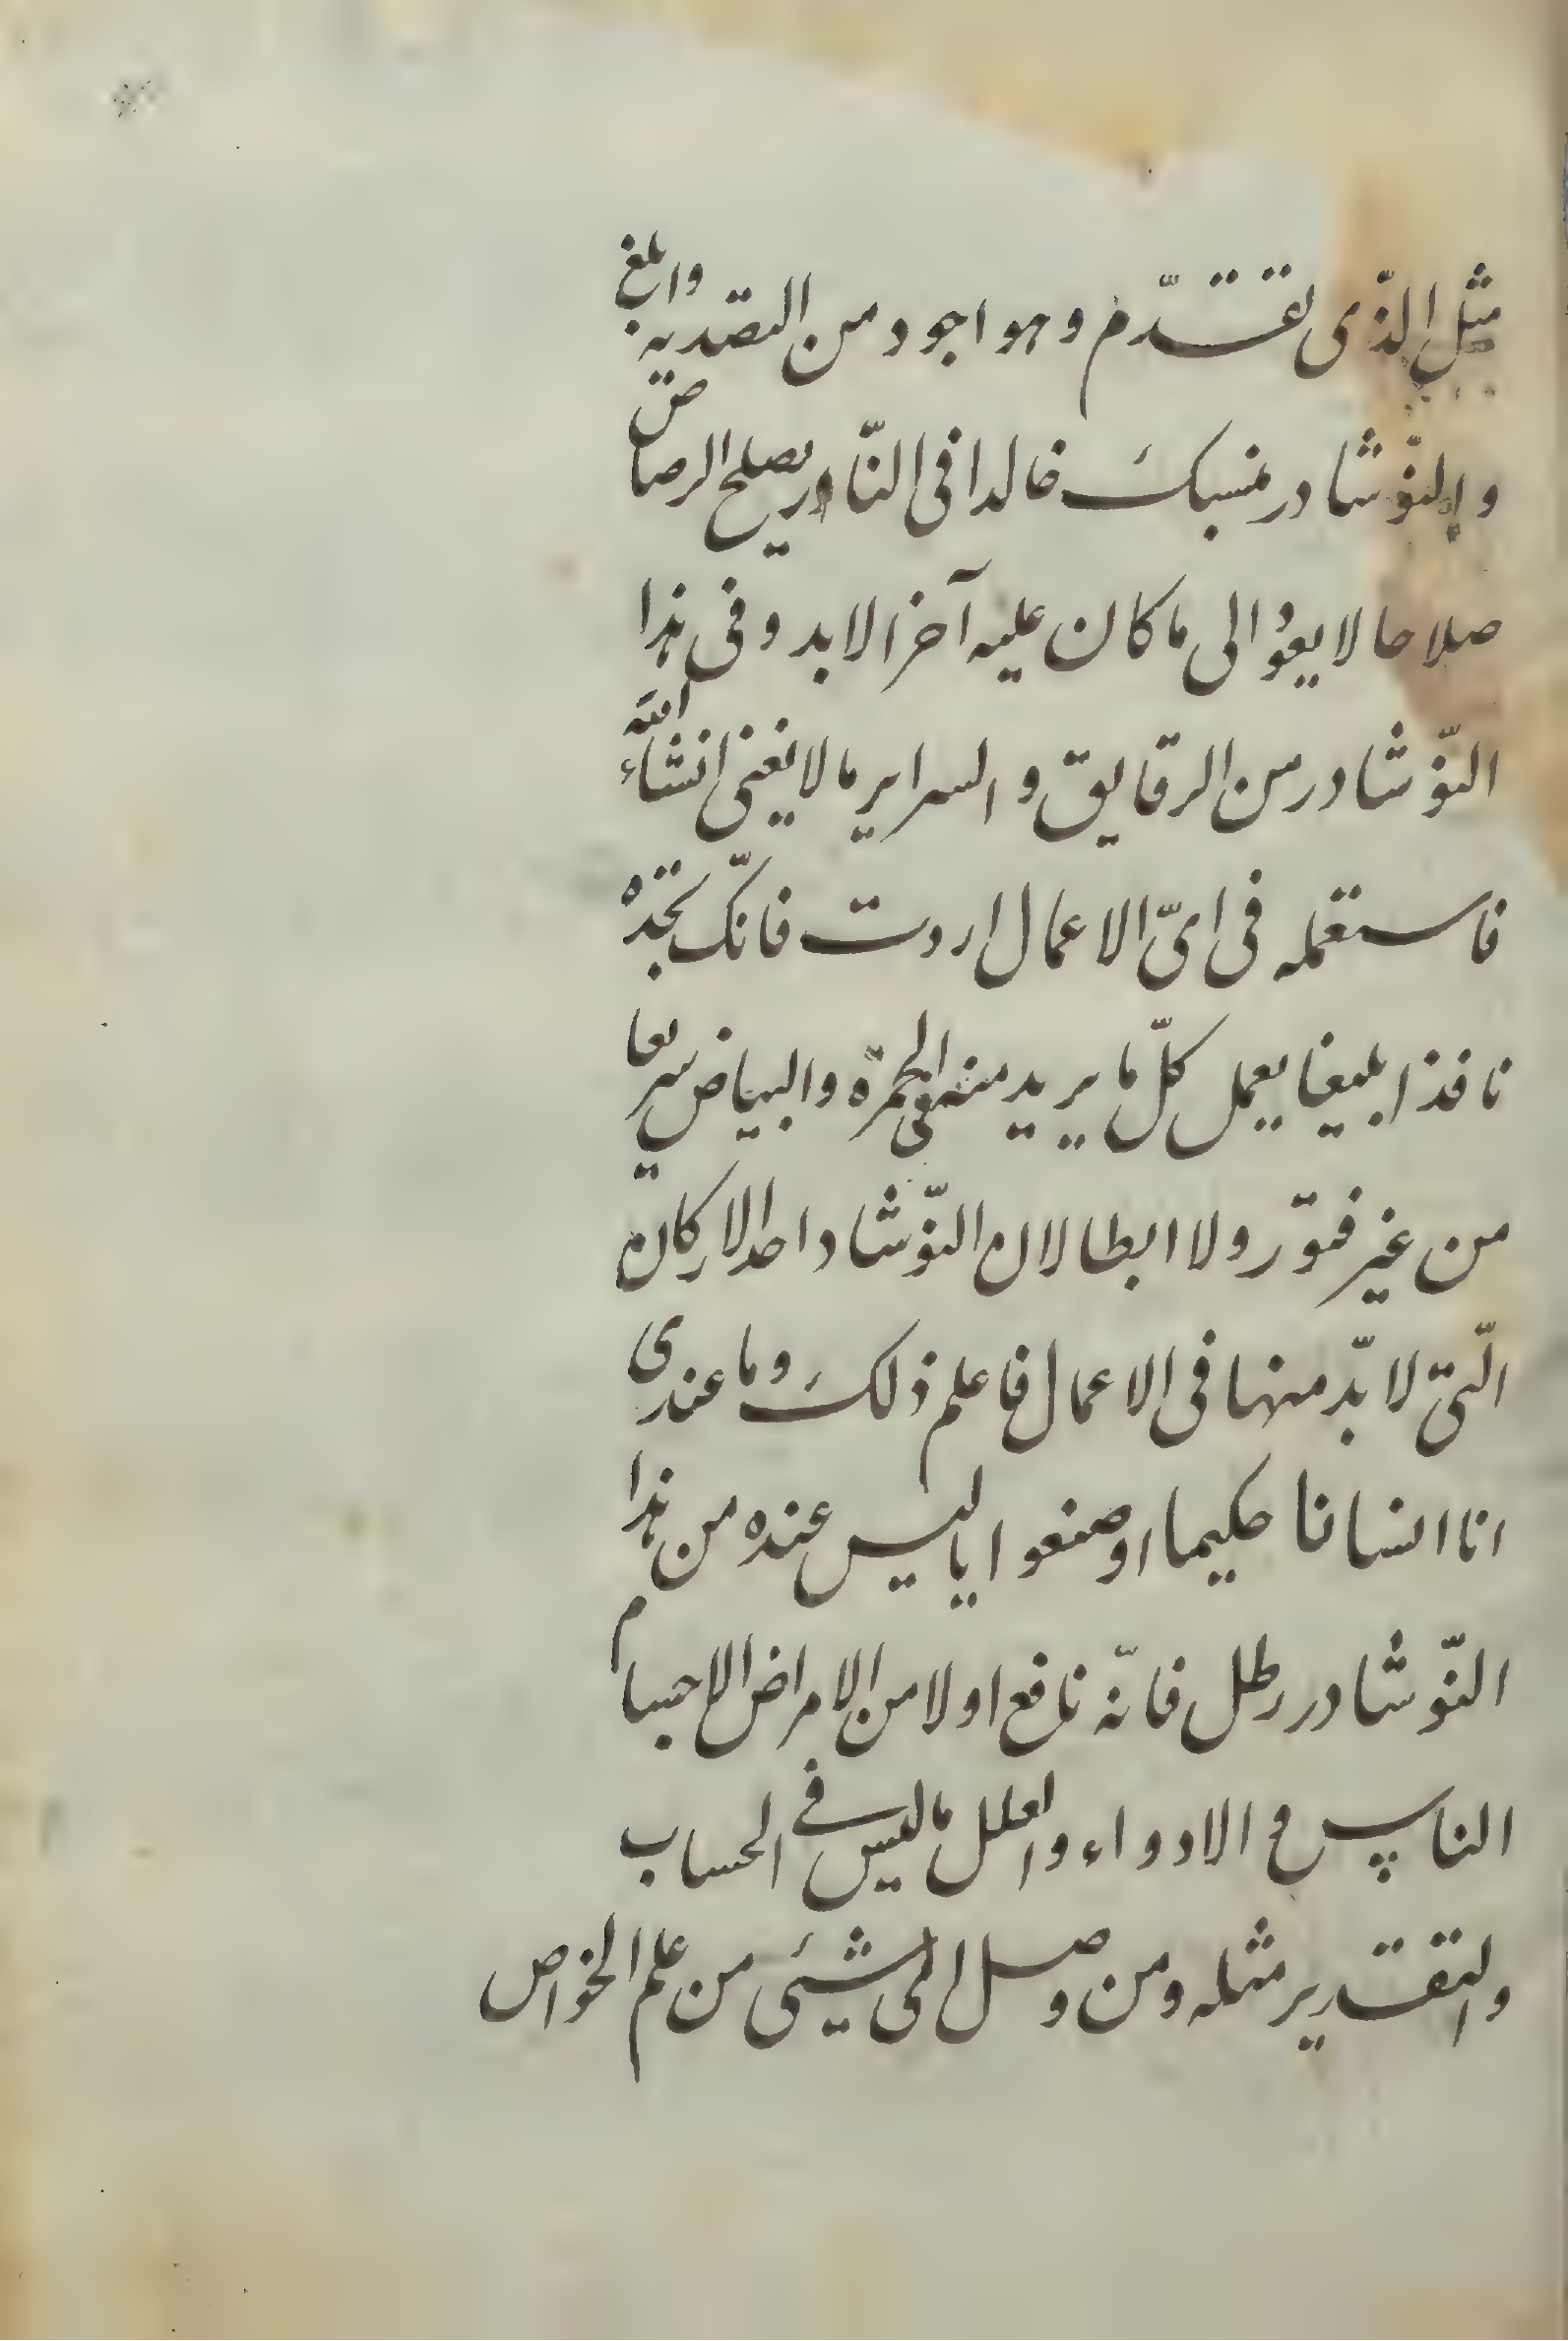 مثل الذّى تقدّم وهو اجود من التصديه وابلغ
والنّوشادر ينسبك خالدا فى النّار ويصلح الرصاص
صلاحا لا يعود الى ما كان عليه آخر الابد وفى هذا
النّوشادر من الرقايق والسراير ما لا يفنى انشاء الله
فاستعمله فى اىّ الاعمال اردت فانّك تجده
نافذا بليغا يعمل كلّ ما يريد منه فى الحمرة والبياض سريعا
من غير فتور ولا ابطا لان النّوشاد احد الاركان
الّتى لا بدّ منها فى الاعمال فاعلم ذلك وما عندى
انا انسانا حكيما او صنعوايا ليس عنده من هذا
النّوشادر رطل فانّه نافع اولا من الامراض الاجسام
الناس و الادواء والعلل ما ليس فے الحساب
والتقدير مثله ومن وصل الى شيئى من علم الخواص